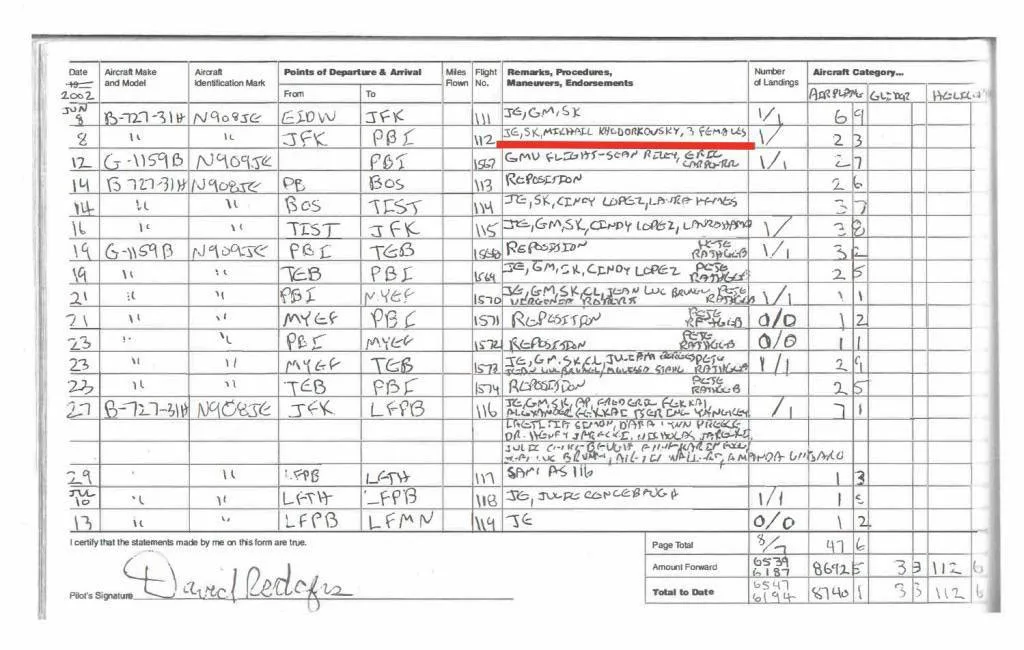 Date Aircraft Make and Model Aircraft Identification Mark Points of Departure & Arrival Miles Flown Flight No. Remarks, Procedures, Maneuvers, Endorsements Number of Landings Aircraft Category...
19 2002 From To AIRPLANE GLIDER
JUN 8 B-727-31H N908JE EIDW JFK 111 JE, GM, SK 1/1 6 9
8 " " JFK PBI 112 JE, SK, MICHAIL KHODORKOVSKY, 3 FEMALES 1/ 2 3
12 G-1159B N909JE PBI 1567 GMU FLIGHT-SEAN RILEY, ERIC 1/1 2 7
14 B 727-31H N908JE PB BOS 113 REPOSITION 2 6
14 " " BOS TIST 114 JE, SK, CINDY LOPEZ, LAURA 3 7
16 " " TIST JFK 115 JE, GM, SK, CINDY LOPEZ, 1/ 3 8
19 G-1159B N909JE PBI TEB REPOSITION PETE RATHGEB 1/1 3 2
19 " " TEB PBI 1569 JE, GM, SK, CINDY LOPEZ PETE RATHGEB 2 5
21 " " PBI MYEF 1570 JE, GM, SK, CL, JEAN LUC BRUNEL, PETE RATHGEB 1/1 1 1
21 " " MYEF PBI 1571 REPOSITION PETE RATHGEB 0/0 1 2
23 " " PBI MYEF 1572 REPOSITION PETE RATHGEB 0/0 1 1
23 " " MYEF TEB 1573 JE, GM, SK, CL, PETE JEAN LUC BRUNEL RATHGEB 1/1 2 9
23 " " TEB PBI 1574 REPOSITION PETE RATHGEB 2 5
27 B-727-31H N908JE JFK LFPB 116 JE, GM, SK, AP, FREDERIC FEKKAI, /1 7 1
ALEXANDER FEKKAI
SIMON, DARA LYNN
DR. HENRY JARECKI, NICHOLAS JARECKI,
JULIE
LUC BRUNEL, AMANDA
29 " LFPB LGTH 117 SAM AS 116 1 3
JUL 10 " " LGTH LFPB 118 JE, JULIE 1/1 1
13 " " LFPB LFMN 119 JE 0/0 1 2
I certify that the statements made by me on this form are true. Page Total 8/7 47 6
Amount Forward 6539 6187 8692 5 3 3 112 6
Pilot's Signature David Rodgers Total to Date 6547 6194 8740 1 3 3 112 6